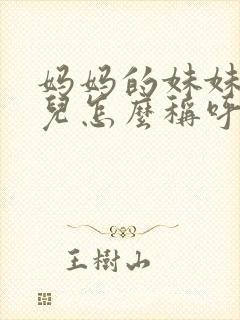 妈妈的妹妹
兒怎麼稱呼
王樹山